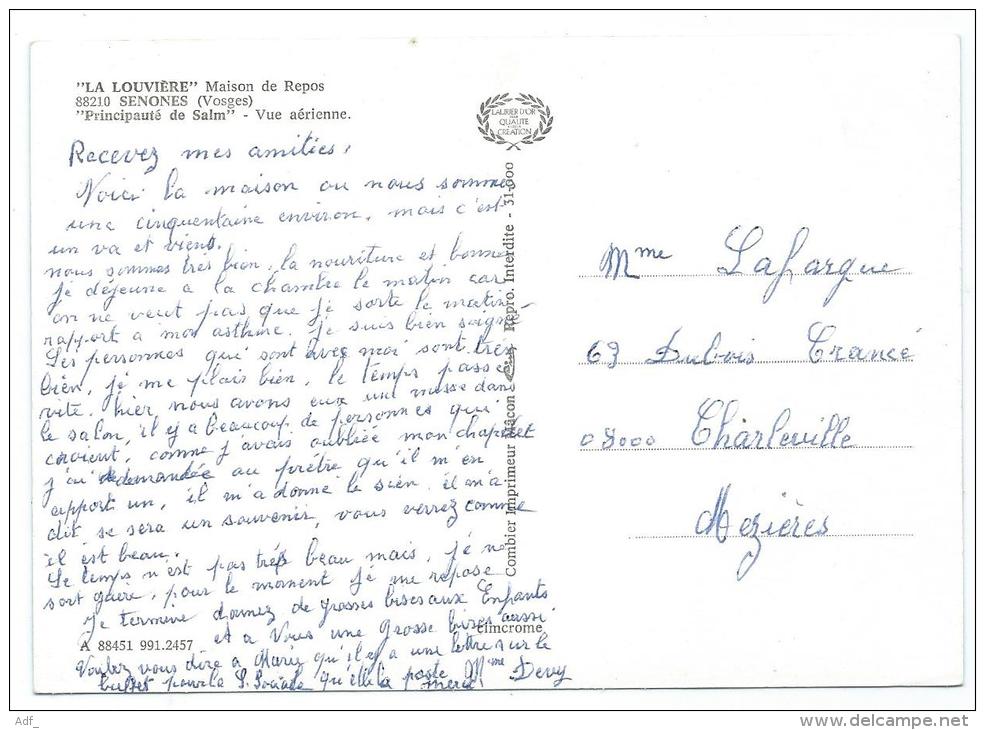 "LA LOUVIÈRE" Maison de Repos
88210 SENONES (Vosges)
"Principauté de Salm" - Vue aérienne.
LAURIER D'OR
QUALITÉ
CRÉATION
Recevez mes amitiées,
Voici la maison ou nous somme
une cinquentaine environ, mais c'est
un va et vient.
nous sommes très bien, la nouriture et bonne
je déjeune a la chambre le matin car
on ne veut pas que je sorte le matin
rapport a mon asthme. je suis bien soigné
Les personnes qui sont avec moi sont très
bien, je me plais bien, le temps passe
vite. hier, nous avons eux une messe dans
le salon, il y a beaucoup de personnes qui
croient, comme j'avais oubliée mon chapelet
j'ai demandée au prêtre qu'il m'en
apport un, il m'a donné le sien. il m'a
dit, se sera un souvenir, vous verrez comme
il est beau.
Le temps n'est pas très beau mais, je ne
sort guère, pour le moment je me repose
je termine donnez de grosses bises aux Enfants
et a Vous une grosse bises aussi
Voulez vous dire a Marie qu'il y a une lettre sur le
buffet pour la S. Sociale qu'elle la poste Mme Devy
merci
A 88451 991.2457
cimcrome
Combier Imprimeur Mâcon Repro. Interdite - 31-000
Mme Lafargue
63 Dubois Crancé
08000 Charleville
Mezières
Adf_
www.delcampe.net